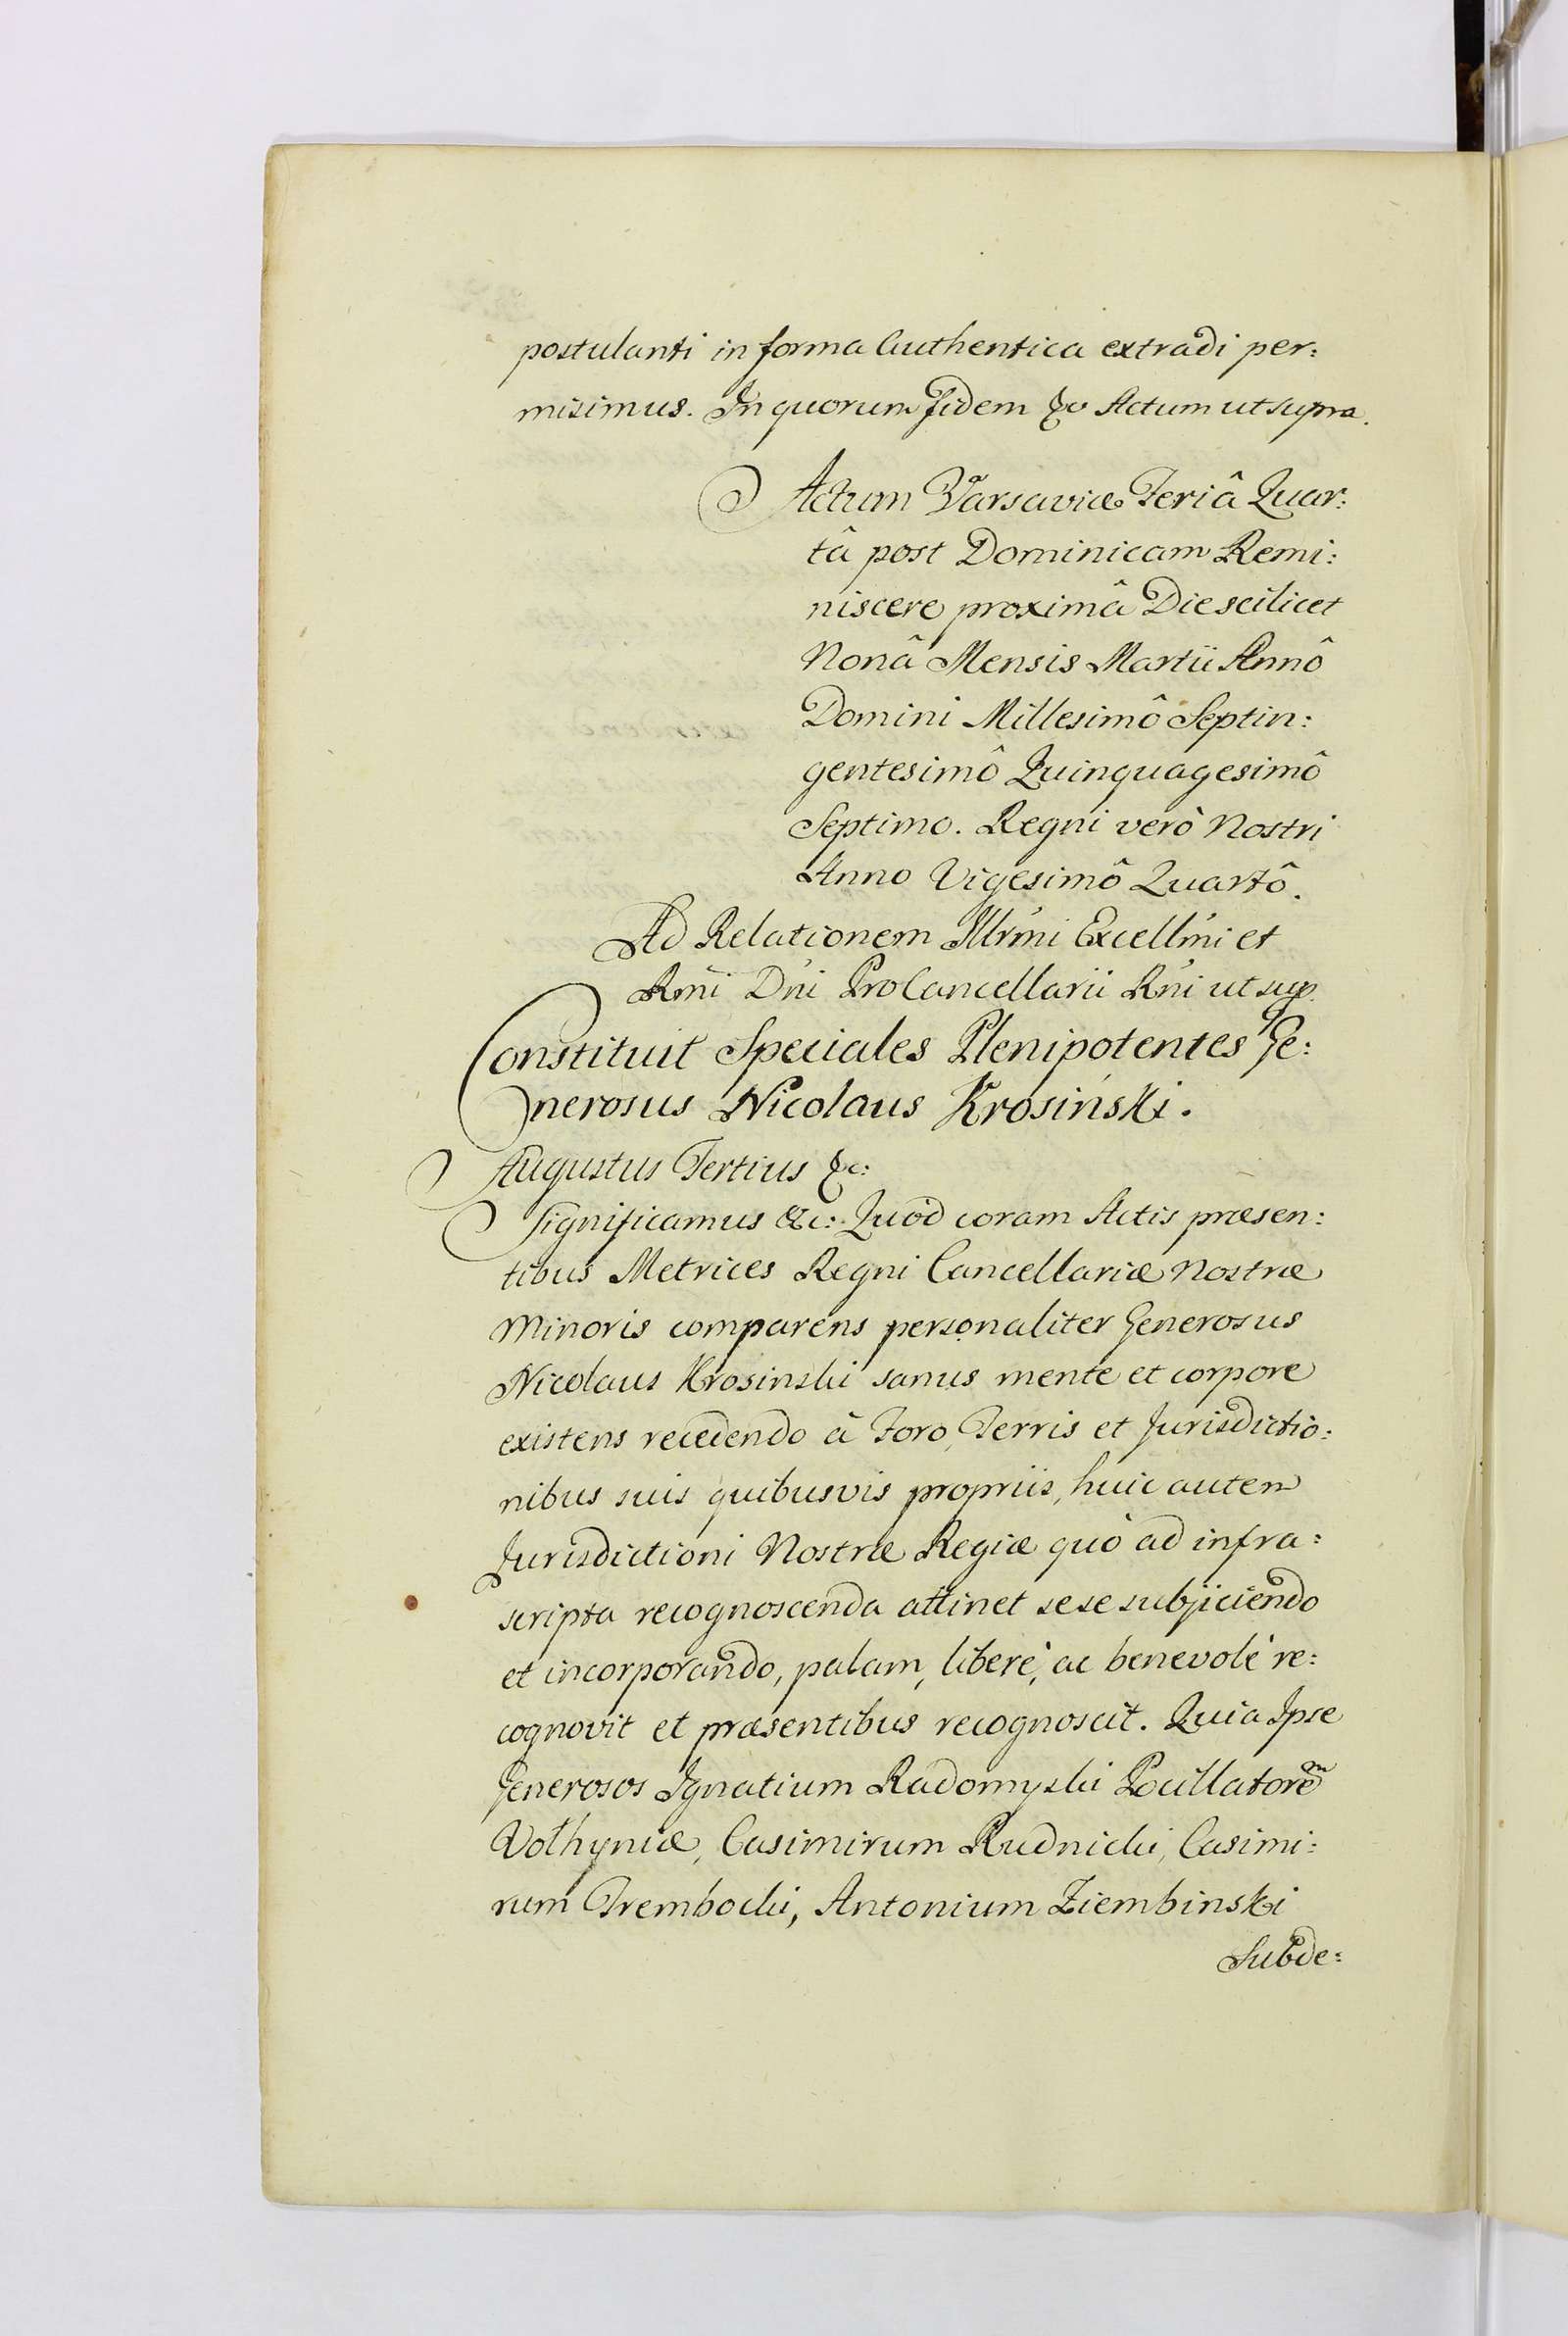 postulanti in forma Authentica extradi per:
misimus. In quorum fidem &c Actum ut supra.
Actum Varsaviæ Feriâ Quar:
tâ post Dominicam Remi:
niscere proximâ Die scilicet
Nonâ Mensis Martii Annô
Domini Millesimô Septin:
gentesimô Quinquagesimô
Septimo. Regni verò Nostri
Anno Vigesimô Quartô.
Ad Relationem Illrmi Excellmi et
Rmi Dni ProCancellarii Rni ut sup.
Constituit Speciales Plenipotentes Ge:
nerosus Nicolaus Krosiński.
Augustus Tertius &c:
Significamus &c: Quod coram Actis præsen:
tibus Metrices Regni Cancellariæ Nostræ
Minoris comparens personaliter Generosus
Nicolaus Krosinski sanus mente et corpore
existens recedendo â Foro, Terris et Jurisdictio:
nibus suis quibusvis propriis, huic autem
Jurisdictioni Nostræ Regiæ quò ad infra:
scripta recognoscenda attinet sese subjiciendo
et incorporando, palam, liberè, ac benevolè re:
cognovit et præsentibus recognoscit. Quia Ipse
Generosos Ignatium Radomyski Pocillatorem
Volhyniæ, Casimirum Rudnicki, Casimi:
rum Trembocki, Antonium Ziembinski
Subde: